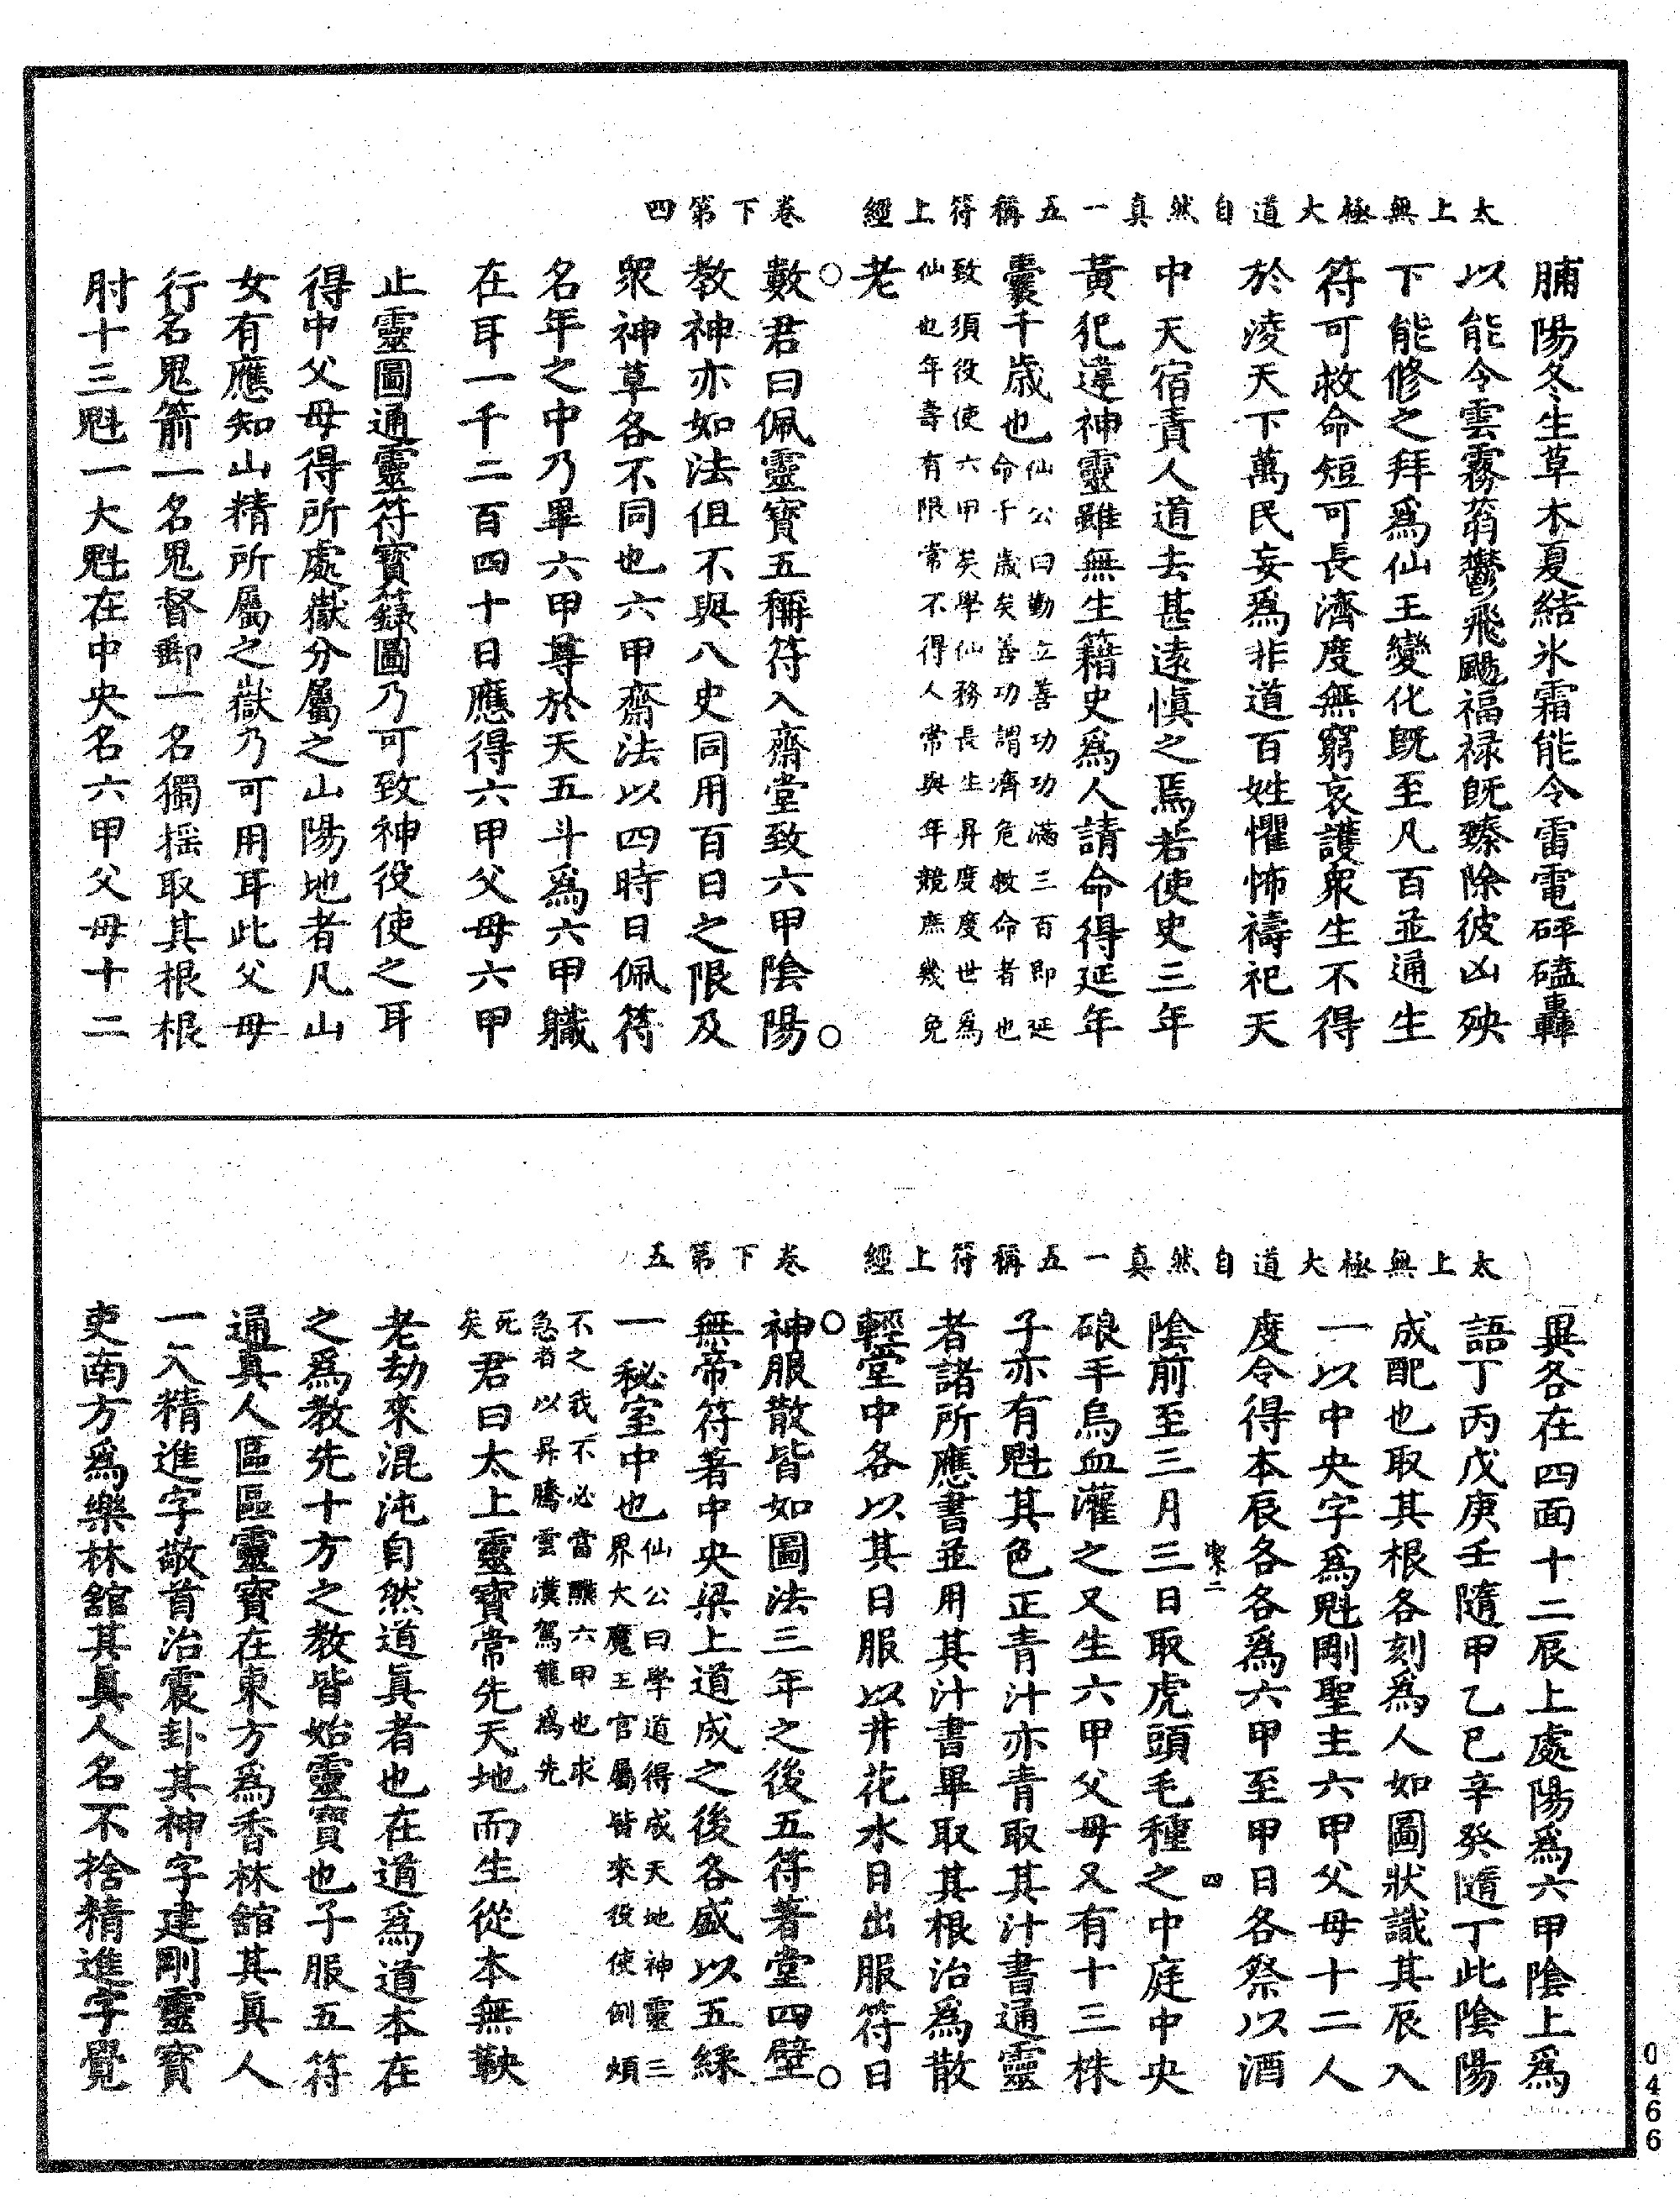 太上無極大道自然真一五稱符上經　卷下第四
脯陽冬生草木夏結氷霜能令雷電砰磕轟
以能令雲霧蓊鬱飛颺福禄旣臻除彼凶殃
下能修之拜爲仙王變化旣至凡百並通生
符可救命短可長濟度無窮哀護衆生不得
於淩天下萬民妄爲非道百姓懼怖禱祀天
中天宿責人道去甚遠愼之焉若使史三年
黃犯違神靈雖無生籍史爲人請命得延年
囊千歲也
仙公曰勤立善功功滿三百即延
命千歲矣善功謂濟危救命者也
致須役使六甲矣學仙務長生昇度度世爲
仙也年壽有限常不得人常與年競庶幾免
老
數君曰佩靈寶五稱符入齋堂致六甲陰陽
教神亦如法但不與八史同用百日之限及
衆神草各不同也六甲齋法以四時日佩符
名年之中乃畢六甲尊於天五斗爲六甲職
在耳一千二百四十日應得六甲父母六甲
止靈圖通靈符寶籙圖乃可致神役使之耳
得中父母得所處嶽分屬之山陽地者凡山
女有應知山精所屬之嶽乃可用耳此父母
行名鬼箭一名鬼督郵一名獨搖取其根根
肘十三魁一大魁在中央名六甲父母十二
太上無極大道自然真一五稱符上經　卷下第五
異各在四面十二辰上處陽爲六甲陰上爲
語丁丙戊庚壬隨甲乙巳辛癸隨丁此陰陽
成配也取其根各刻爲人如圖狀識其辰入
一以中央字爲魁剛聖主六甲父母十二人
度令得本辰各各爲六甲至甲日各祭以酒
四
陰前至三月三日取虎頭毛種之中庭中央
硠手烏血灌之又生六甲父母又有十三株
子亦有魁其色正青汁亦青取其汁書通靈
者諸所應書並用其汁書畢取其根治爲散
輕堂中各以其日服以井花水日出服符日
神服散皆如圖法三年之後五符著堂四壁
無帝符著中央梁上道成之後各盛以五綵
一秘室中也
仙公曰學道得成天地神靈三
界大魔王官屬皆來役使倒煩
不之我不必當醮六甲也求
急者以昇騰雲漢駕龍爲先
死
矣
君曰太上靈寶常先天地而生從本無鞅
老劫來混沌自然道眞者也在道爲道本在
之爲教先十方之教皆始靈寶也子服五符
通真人區區靈寶在東方爲香林館其眞人
一入精進字敬首治震卦其神字建剛靈寶
吏南方爲樂林舘其眞人名不捨精進字覺
0466